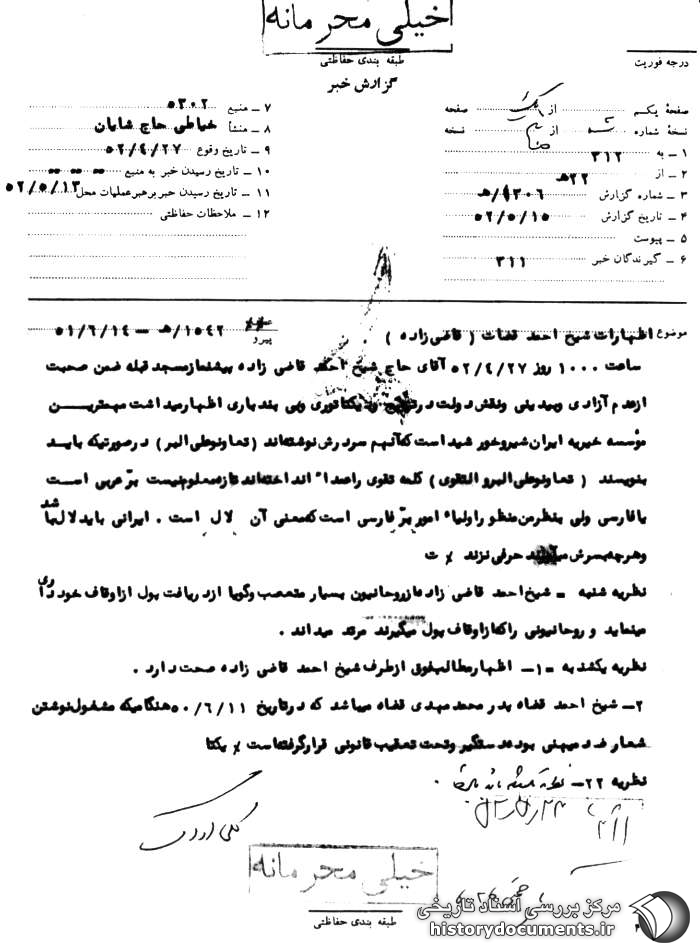 خیلی محرمانه
طبقه بندی حفاظتی
گزارش خبر
درجه فوریت
صفحهٔ یکم از یک صفحه
نسخهٔ شماره از نسخه
۱ – به ۳۱۲
۲ – از ۲۲ هـ
۳ – شماره گزارش
۴ – تاریخ گزارش ۵۲/۵/۱۵
۵ – پیوست
۶ – گیرندگان خبر ۳۱۱
۷ – منبع ۵۳۰۲
۸ – منشأ خیاطی حاج شایان
۹ – تاریخ وقوع ۵۲/۴/۲۷
۱۰ – تاریخ رسیدن خبر به منبع
۱۱ – تاریخ رسیدن خبر برهبر عملیات محل ۵۲/۵/۱۳
۱۲ – ملاحظات حفاظتی
موضوع اظهارات شیخ احمد قضات ( قاضی زاده )
پیرو ۱۵۴۲/هـ – ۵۱/۶/۱۴
ساعت ۱۰۰۰ روز ۵۲/۴/۲۷ آقای حاج شیخ احمد قاضی زاده پیشنماز مسجد قبله ضمن صحبت
از عدم آزادی و بیدینی و نقش دولت در دیکتاتوری و بی بند باری اظهار میداشت مهمترین
مؤسسه خیریه ایران شیر و خورشید است که آنهم سر درش نوشته اند ( تعاونوعلی البر ) در صورتیکه باید
بنویسند ( تعاونوعلی البر و التقوی ) کلمه تقوی را عمداً انداخته اند تازه معلوم نیست برّ عربی است
یا فارسی ولی بنظر من منظور اولیاء امور برّ فارسی است که معنی آن لال است . ایرانی باید لال باشد
و هر چه بسرش حرفی نزند / ت
نظریه شنبه – شیخ احمد قاضی زاده از روحانیون بسیار متعصب و گویا از دریافت پول از اوقاف خودداری
مینماید و روحانیونی را که از اوقاف پول میگیرند مرتد میداند .
نظریه یکشنبه – ۱– اظهار مطالب فوق از طرف شیخ احمد قاضی زاده صحت دارد .
۲– شیخ احمد قضاه پدر محمد مهدی قضاه میباشد که در تاریخ ۵۰/۶/۱۱ هنگامیکه مشغول نوشتن
شعار ضد میهنی بوده دستگیر و تحت تعقیب قانونی قرار گرفته است / یکتا
نظریه ۲۲–
خیلی محرمانه
طبقه بندی حفاظتی
مرکز بررسی اسناد تاریخی
historydocuments.ir